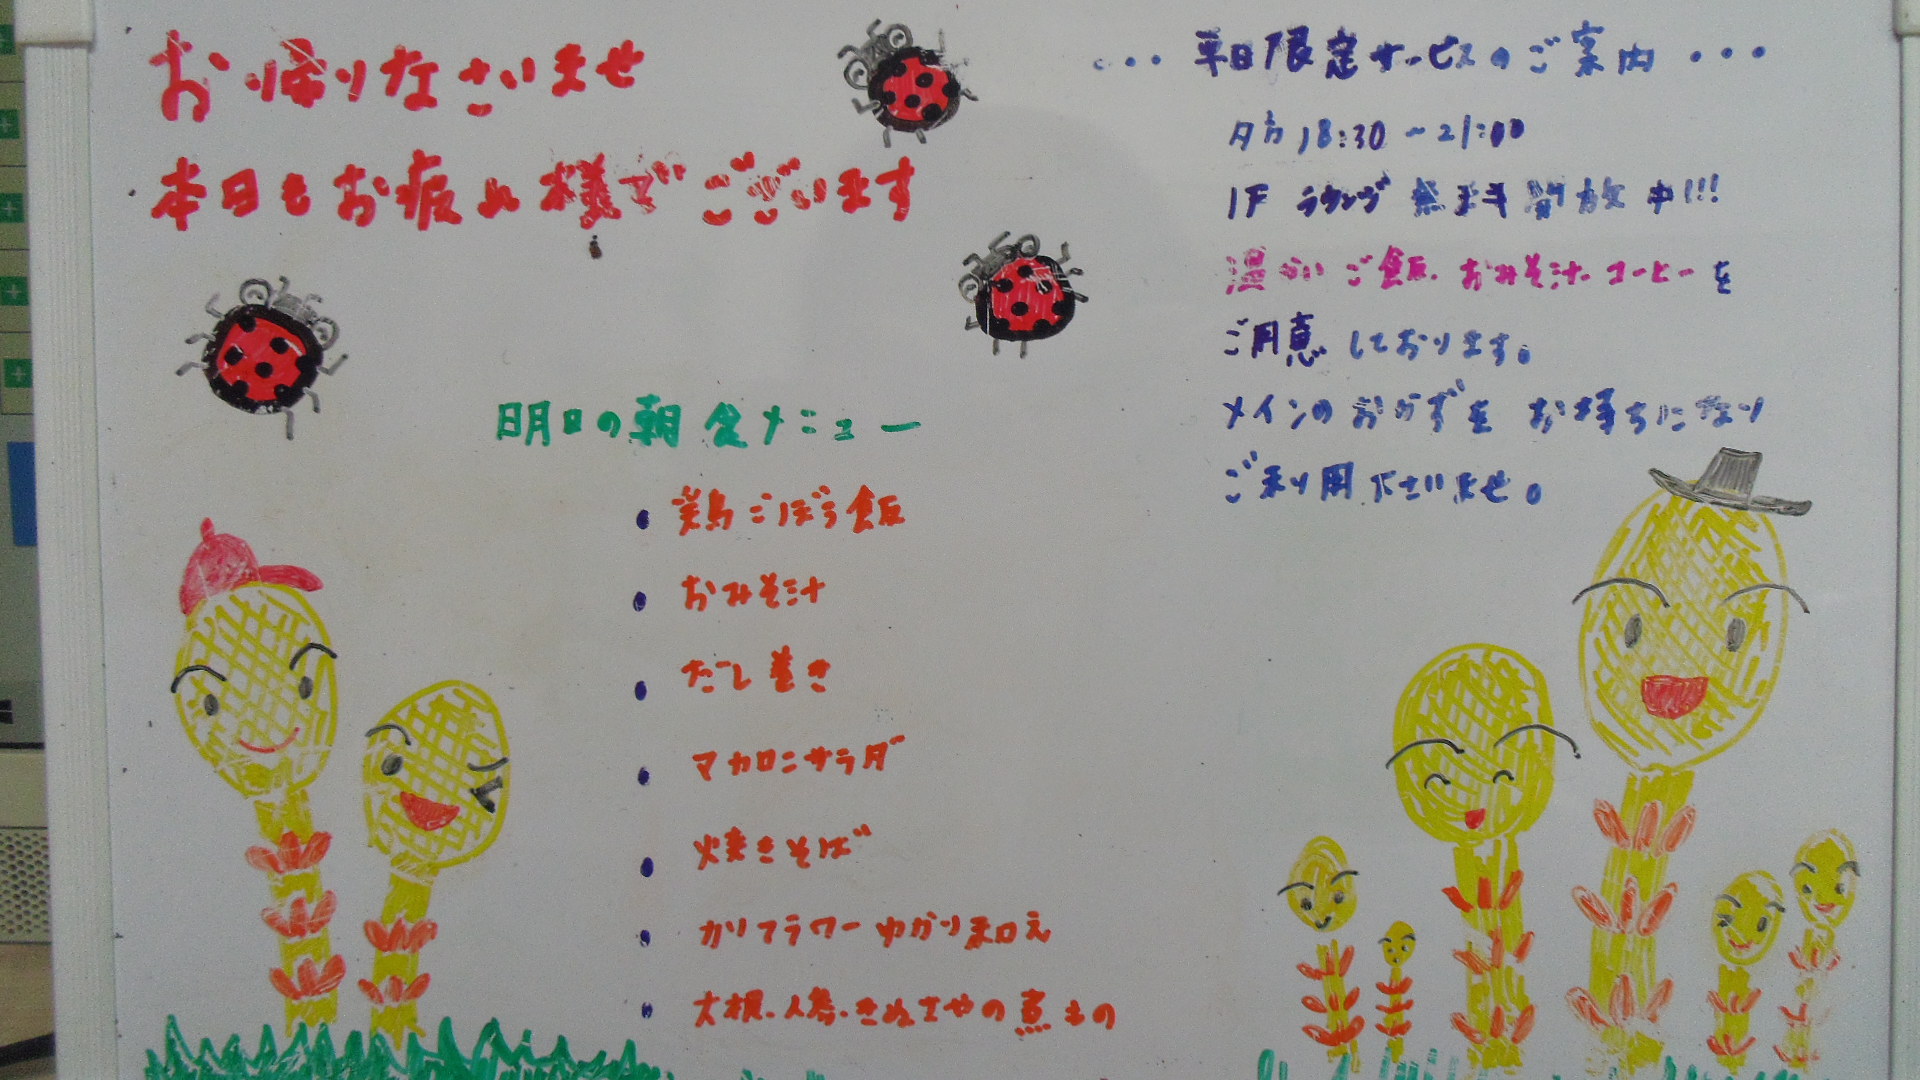 お帰りなさいませ
本日もお疲れ様でございます
明日の朝食メニュー
• 鶏ごぼう飯
• おみそ汁
• だし巻き
• マカロニサラダ
• 焼きそば
• カリフラワーゆかり和え
• 大根・人参・きぬさやの煮もの
・・・平日限定サービスのご案内・・・
夕方 18:30~21:00
1F ラウンジ 無料開放中!!!
温かいご飯・おみそ汁・コーヒーを
ご用意しております。
メインのおかずをお持ちになり
ご利用下さいませ。